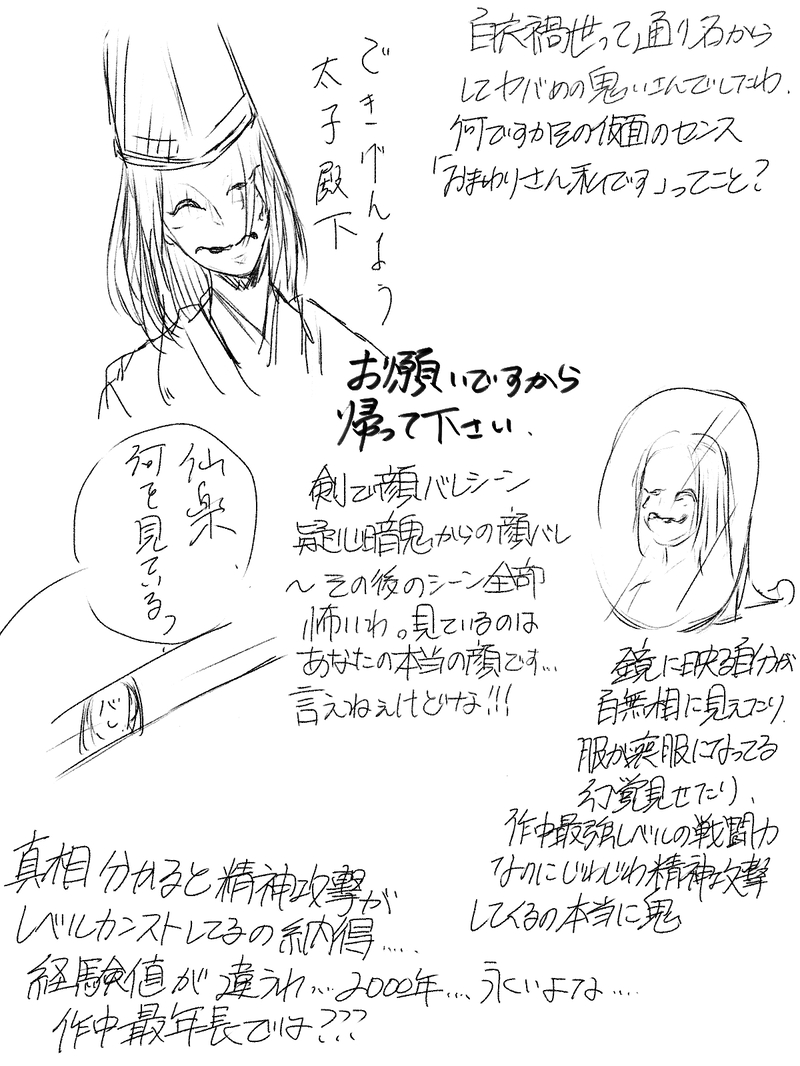 白衣禍世って通り名から
してヤバめの鬼いさんでしたわ.
何ですかその仮面のセンス
「おまわりさん私です」ってこと?
ごきげんよう
太子殿下
お願いですから
帰って下さい.
仙楽、
何を見ている?
バレ
剣で顔バレシーン
疑心暗鬼からの顔バレ
〜その後のシーン全部
怖いわ。見ているのは
あなたの本当の顔です…
言えねぇけどな!!!
鏡に映る自分が
白無相に見えたり、
服が喪服になってる
幻覚見せたり、
作中最強レベルの戦闘力
なのにじわじわ精神攻撃
してくるの本当に鬼
真相分かると精神攻撃が
レベルカンストしてるの納得….
経験値が違うわ…2000年…. 永いよな….
作中最年長では???